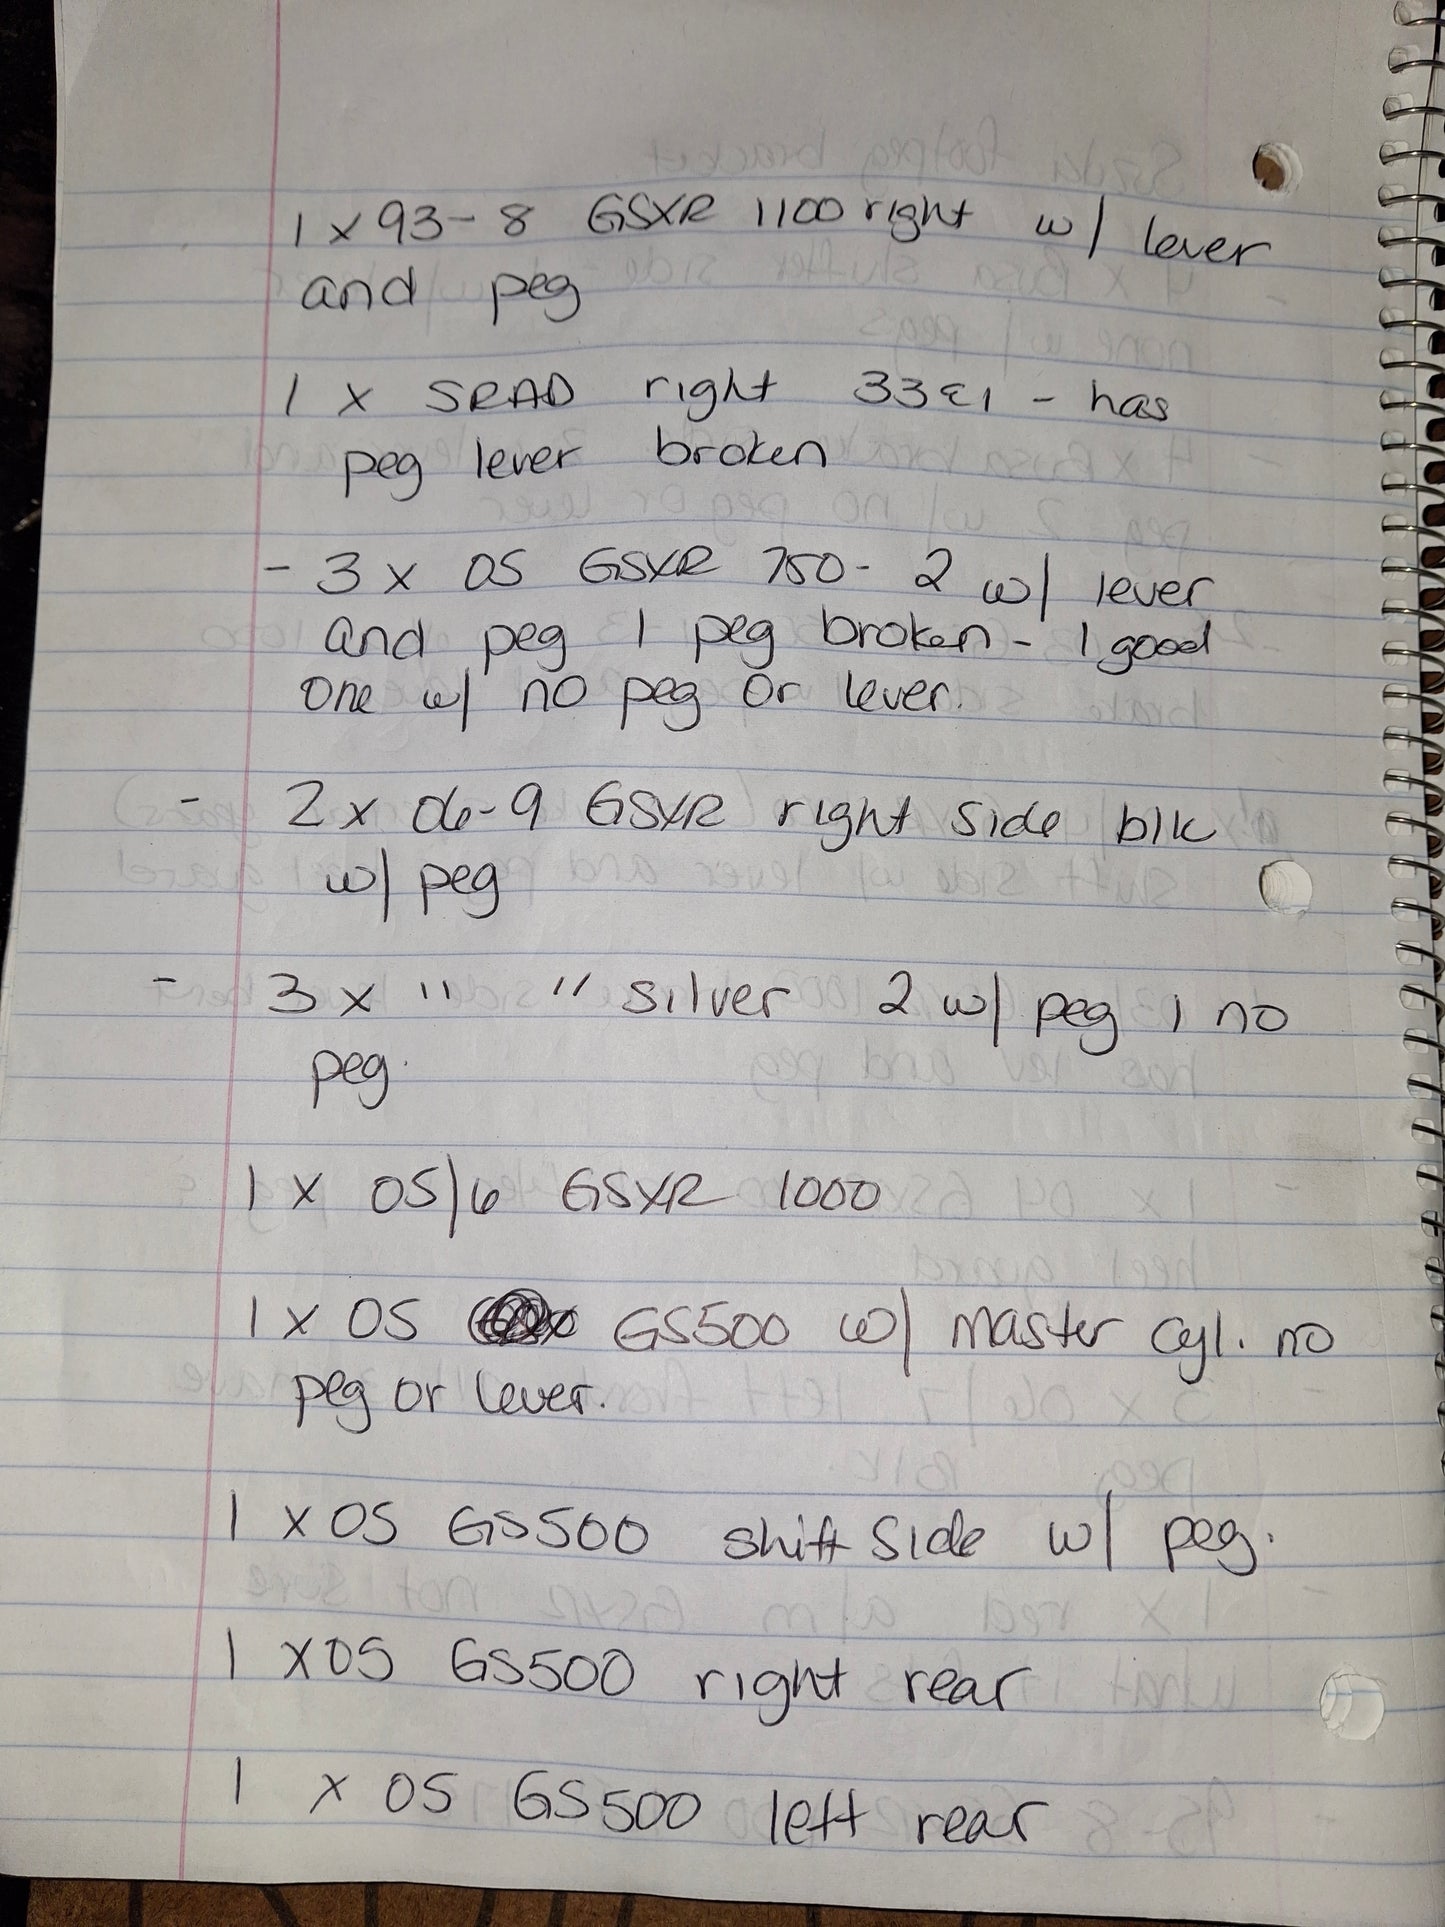 1 x 93-8 GSXR 1100 right w/ lever
and peg
1 x SRAD right 33E1 - has
peg lever broken
- 3 x 05 GSXR 750 - 2 w/ lever
and peg 1 peg broken - 1 good
one w/ no peg or lever.
- 2 x 06-9 GSXR right side blk
w/ peg
- 3 x " " silver 2 w/ peg 1 no
peg.
1 x 05/6 GSXR 1000
1 x 05 GS500 w/ master cyl. no
peg or lever.
1 x 05 GS500 shift side w/ peg.
1 x 05 GS500 right rear
1 x 05 GS500 left rear